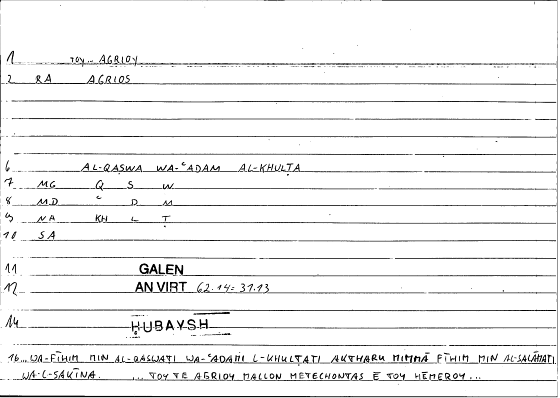 1 TOY... AGRIOY
2 RA AGRIOS
6 AL-QASWA WA-ʿADAM AL-KHULṬA
7 MG Q S W
8 MD ʿ D M
9 NA KH L Ṭ
10 SA
11 GALEN
12 AN VIRT 62.14 = 31.13
14 ḤUBAYSH
16 ... WA-FĪHIM MIN AL-QASWATI WA-ʿADAMI L-KHULṬATI AKTHARU MIMMĀ FĪHIM MIN AL-SALĀMATI
WA-L-SAKĪNA. ... TOY TE AGRIOY MALLON METECHONTAS E TOY HĒMEROY...